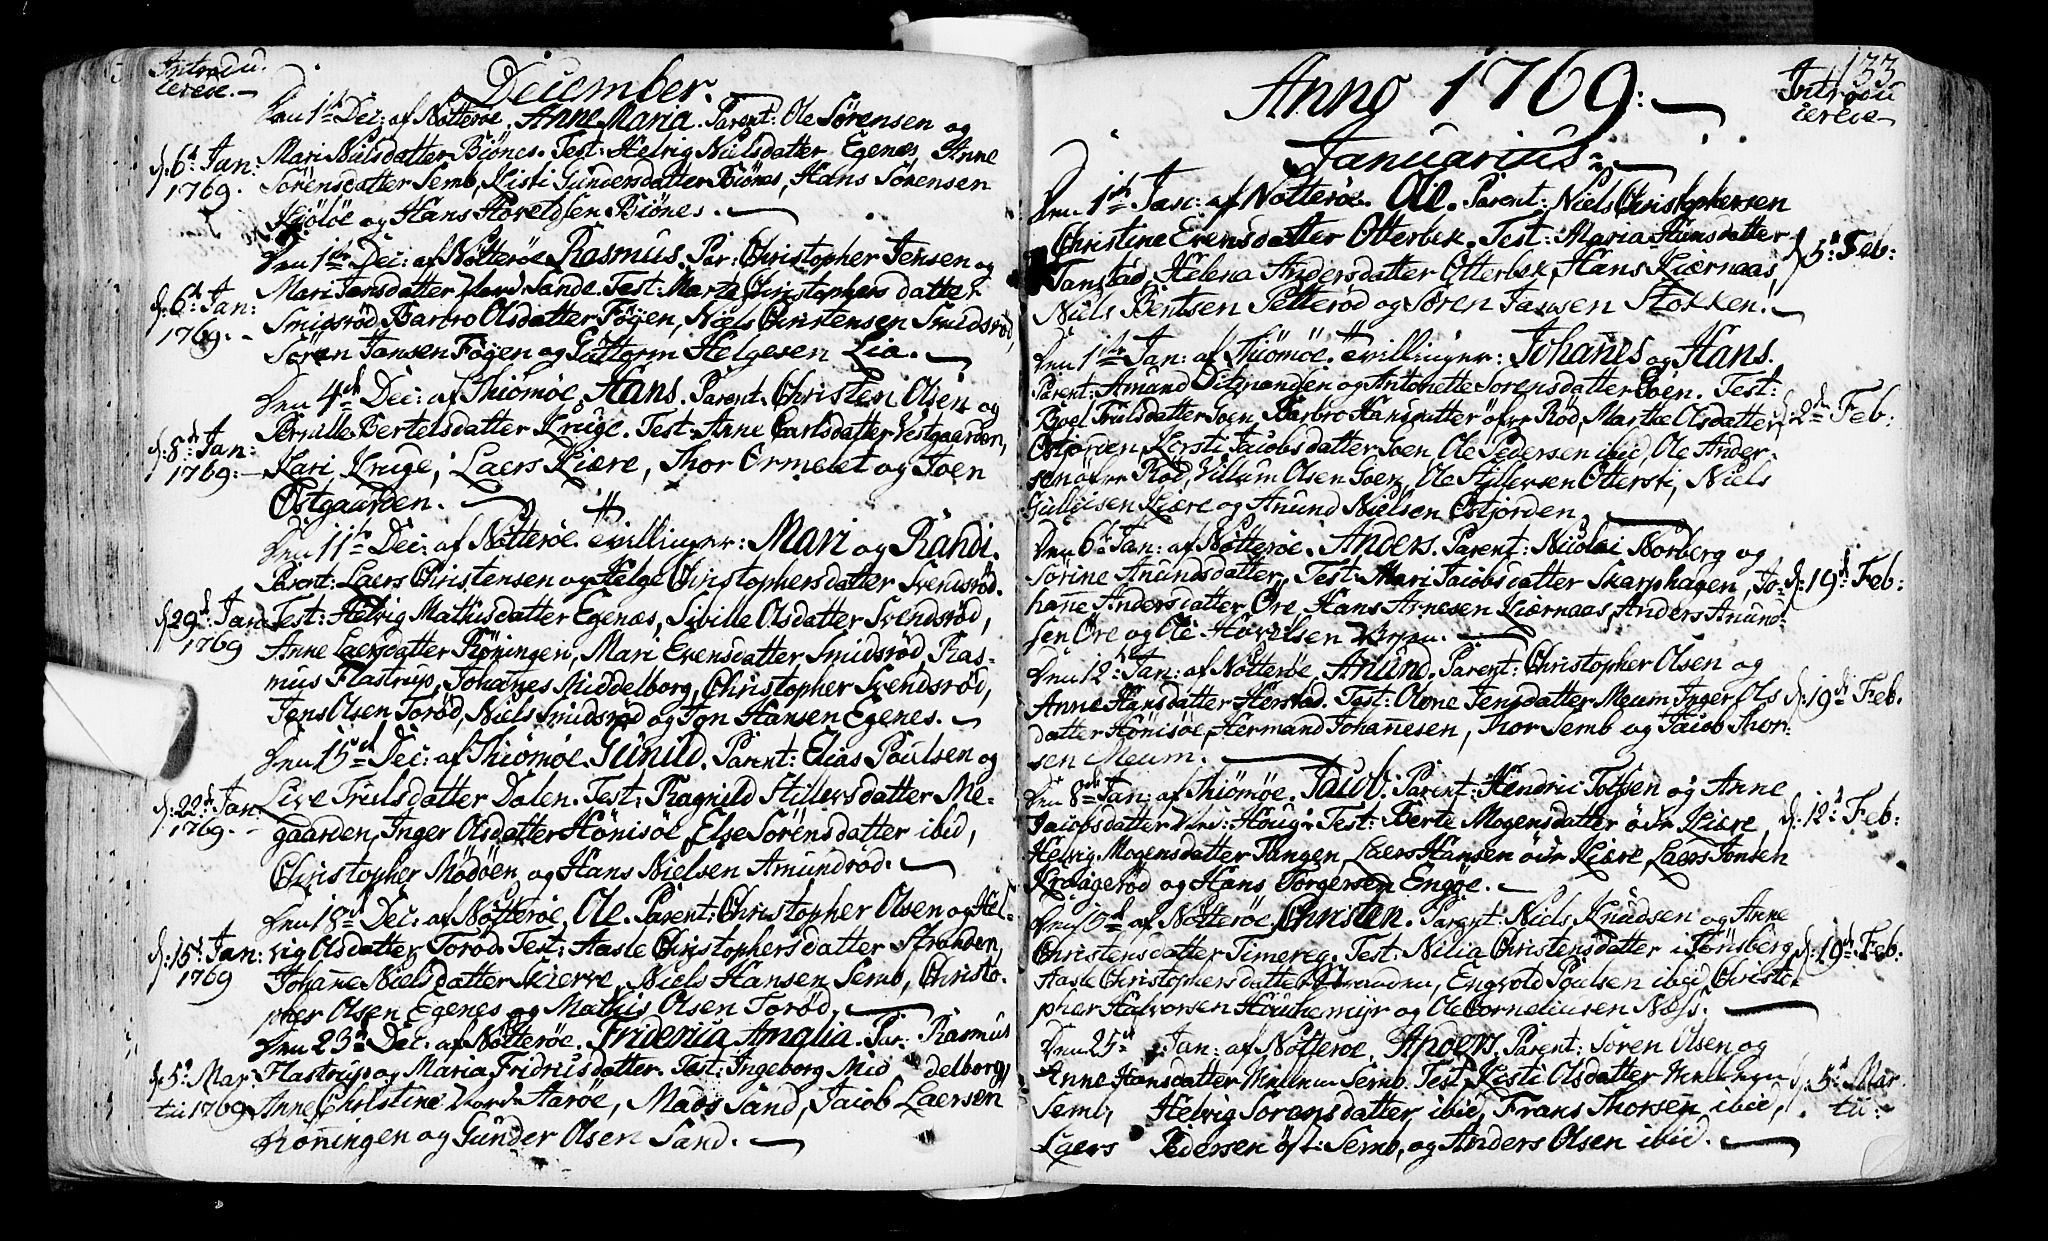 Introdu
cerede.
December.
Den 1te Dec: af Nötteröe. Anne Maria. Parent: Ole Sörensen og
d: 6t Jan: Mari Nielsdatter Biönes. Test: Helvig Nielsdatter Egenes, Anne
1769. Sörensdatter Semb, Kisti Gundersdatter Biönes, Hans Sörensen
og Hans Biönes.
Den 1te Dec: af Nötteröe Rasmus. Par: Christopher Jensen og
d: 6t Jan: Mari Jansdatter Sande. Test: Marte Christophersdatter
1769. Smidsröd, Barbro Olsdatter Föyen, Niels Christensen Smidsröd,
Sören Jansen Föyen og Guttorm Helgesen Lia.
Den 4de Dec: af Thiömöe. Hans. Parent: Christen Olsen og
Pernille Bertelsdatter Kruge. Test: Anne Carlsdatter Vestgaarden,
d: 8de Jan: Kari Kruge, Laers Kiære, Thor Ormelet og Joen
1769:
Östgaarden.
Den 11te Dec: af Nötteröe. tvillinger: Mari og Randi.
Parent: Laers Christensen og Helge Christophersdatter Svendsröd.
d: 29de Jan: Test: Helvig Mathisdatter Egenæs, Siville Olsdatter Svendsröd,
1769 Anne Laersdatter Röningen, Mari Evensdatter Smidsröd, Ras-
mus Flastrup, Johannes Middelborg, Christopher Svendsröd,
Jans Olsen Toröd, Niels Smidsröd og Jon Hansen Egenes.
Den 15de Dec: af Thiömöe. Gunild. Parent: Elias Poulsen og
d: 22de Jan: Live Trulsdatter Dalen. Test: Ragnild Hillersdatter Me-
1769. gaarden, Inger Olsdatter Hönisöe, Else Sörensdatter ibid,
Christopher Mödöen og Hans Nielsen Amundröd.
Den 18de Dec: af Nötteröe. Ole. Parent: Christopher Olsen og Hel-
d: 15de Jan: vig Olsdatter Toröd. Test: Aasle Christophersdatter Stranden,
1769 Johanne Nielsdatter Kierre, Niels Hansen Semb, Christo-
pher Olsen Egenes og Mathis Olsen Toröd.
Den 23de Dec: af Nötteröe. Fridericia Amalia. Par: Rasmus
d: 5t Mar- Flastrup og Maria Fridricsdatter. Test: Ingeborg Mid delborg,
tii 1769. Anne Christine Aaröe, Mads Sand, Jacob Laersen
Röningen og Gunder Olsen Sand.
133
Anno 1769.
Introdu
cerede
Januarius.
Den 1te Jan: af Nötteröe. Ole. Parent: Niels Christophersen
Christine Evensdatter Otterbek. Test: Maria Hansdatter
Tanstad, Helena Andersdatter Otterbek, Hans Kiærnaas, d. 5t Feb:
Niels Bentsen Petteröd og Sören Jansen Stokken.
Den 1te Jan: af Thiömöe. tvillinger: Johanes og Hans.
Parent: Amund og Antonette Sorensdatter Soen. Test:
Boel Trulsdatter Soen, Barbro Hansdatter öfvr Röd, Marthe Olsdatter d: 2de Feb:
Östjorden, Kersti Jacobsdatter Soen, Ole Pedersen ibid, Ole Ander-
sen öfvr Röd, Villum Olsen Soen, Ole Hillersen Ottersti, Niels
Gullicsen Kiære og Anund Nielsen Östjorden.
Den 6t Jan: af Nötteröe. Anders. Parent: Nicolai Norberg og
Sörine Anundsdatter, Test: Mari Jacobsdatter Skarphagen, Jo- d: 19de Feb:
hanne Andersdatter Öre, Hans Arnesen Kiærnaas, Anders Anund-
sen Öre og Ole Havelsen
Den 12te Jan: af Nötteröe. Anund. Parent: Christopher Olsen og
Anne Hansdatter Herstad. Test: Olene Jensdatter Meum, Inger Ols d: 19de Feb.
datter Hönisöe, Hermand Johannesen, Thor Semb og Jacob Thor-
sen Meum.
Den 8de Jan: af Thiömöe. Jacob. Parent: Hendric Tolfsen og Anne
Jacobsdatter Houg. Test: Berte Mogensdatter Kiære, d: 12t Feb:
Helvig Mogensdatter Tangen, Laers Hansen Kiære, Laers Jonsen
Kraageröd og Hans Torgersen Engöe.
Den 10de af Nötteröe. Christen. Parent. Niels Knudsen og Anne
Christensdatter Timereg. Test: Nilia Christensdatter i Tönsberg d: 19de Feb:
Aasle Christophersdatter Stranden, Engvold Poulsen ibid, Christo-
pher Halvorsen og Ole Corneliusen Næss.
Den 25de Jan: af Nötteröe. Anders. Parent: Sören Olsen og
Anne Hansdatter Semb. Test: Kisti Olsdatter d. 5t Mar-
Semb, Helvig Sorensdatter ibid, Frans Thorsen ibid, tii
Laers Pedersen öst: Semb, og Anders Olsen ibid.